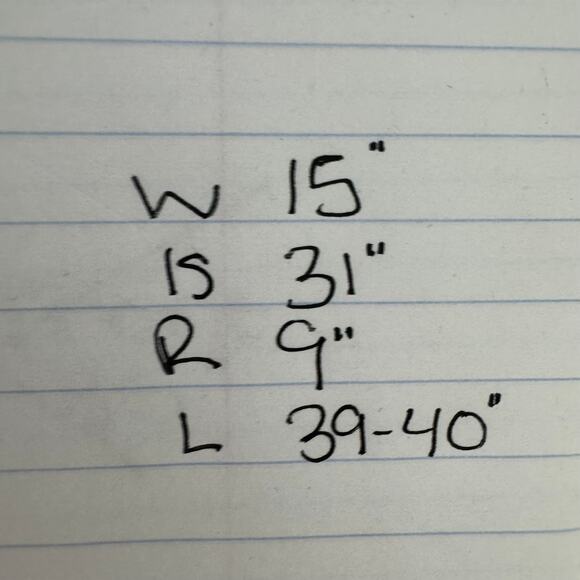 W 15"
IS 31"
R 9"
L 39-40"